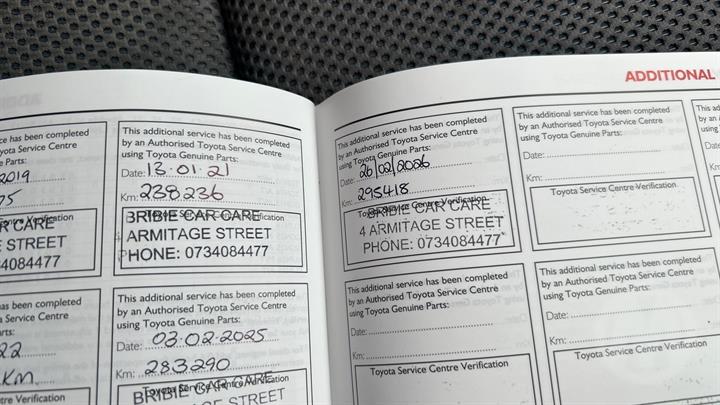 ADDITIONAL
ce has been completed
yota Service Centre
e Parts:
2019
75
Centre Verification
R CARE
E STREET
4084477
This additional service has been completed
by an Authorised Toyota Service Centre
using Toyota Genuine Parts:
Date: 13.01.21
Km: 238236
Toyota Service Centre Verification
BRIBIE CAR CARE
ARMITAGE STREET
PHONE: 0734084477
as been completed
Service Centre
rts:
22
KM
re Verification
This additional service has been completed
by an Authorised Toyota Service Centre
using Toyota Genuine Parts:
Date: 03.02.2025
Km: 283290
Toyota Service Centre Verification
BRIBIE CAR CARE
GE STREET
This additional service has been completed
by an Authorised Toyota Service Centre
using Toyota Genuine Parts:
Date: 26/02/2026
Km: 295418
Toyota Service Centre Verification
BRIBIE CAR CARE
4 ARMITAGE STREET
PHONE: 0734084477
This additional service has been completed
by an Authorised Toyota Service Centre
using Toyota Genuine Parts:
Date:
Km:
Toyota Service Centre Verification
This ad
by an
using
Date:
Km:
This additional service has been completed
by an Authorised Toyota Service Centre
using Toyota Genuine Parts:
Date:
Km:
Toyota Service Centre Verification
This additional service has been completed
by an Authorised Toyota Service Centre
using Toyota Genuine Parts:
Date:
Km:
Toyota Service Centre Verification